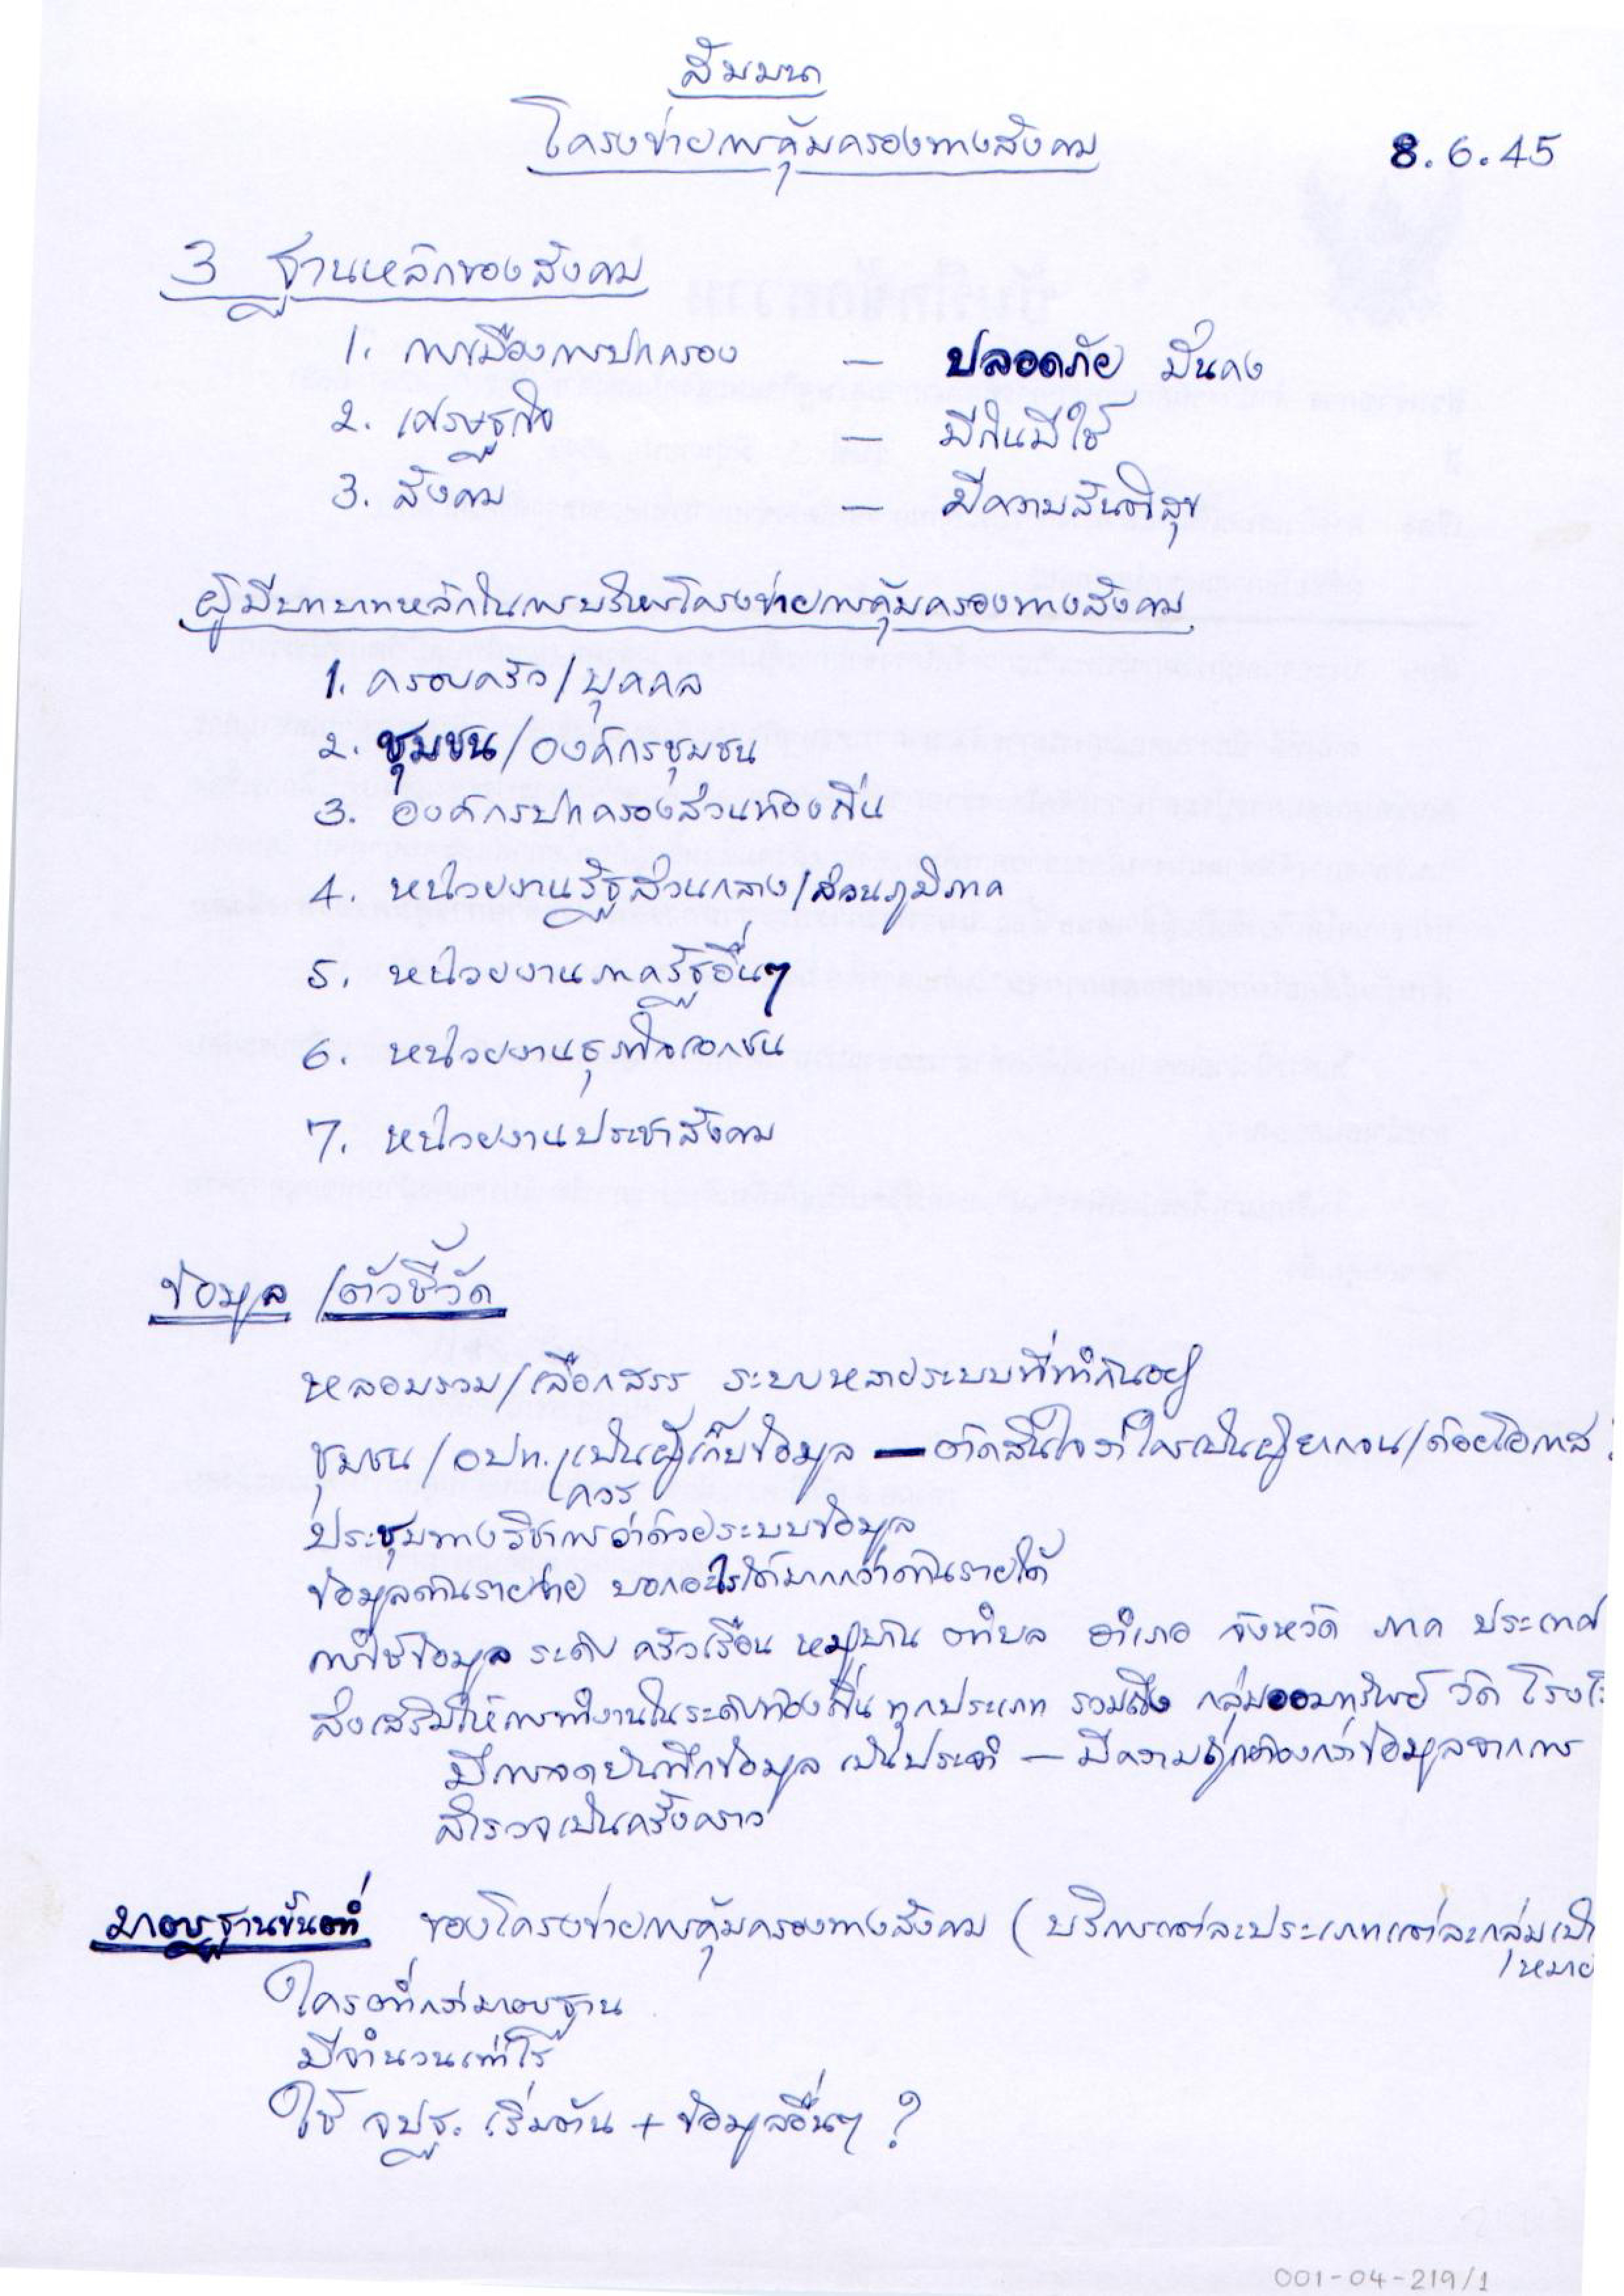 สัมมนา
โครงข่ายการคุ้มครองทางสังคม
8.6.45
3 ฐานหลักของสังคม
1. การเมืองการปกครอง — ปลอดภัย มั่นคง
2. เศรษฐกิจ — มีกินมีใช้
3. สังคม — มีความสันติสุข
ผู้มีบทบาทหลักในการบริหารโครงข่ายการคุ้มครองทางสังคม
1. ครอบครัว/บุคคล
2. ชุมชน/องค์กรชุมชน
3. องค์กรปกครองส่วนท้องถิ่น
4. หน่วยงานรัฐส่วนกลาง/ส่วนภูมิภาค
5. หน่วยงานภาครัฐอื่นๆ
6. หน่วยงานธุรกิจเอกชน
7. หน่วยงานประชาสังคม
ข้อมูล /ตัวชี้วัด
หลอมรวม/เลือกสรร ระบบหลายระบบที่ทำกันอยู่
ชุมชน/อปท. เป็นผู้เก็บข้อมูล — ตัดสินใจว่าใครเป็นผู้ยากจน/ด้อยโอกาส
ควร
ประชุมทางวิชาการว่าด้วยระบบข้อมูล
ข้อมูลด้านรายจ่าย บอกอะไรได้มากกว่าด้านรายได้
การใช้ข้อมูล ระดับ ครัวเรือน หมู่บ้าน ตำบล อำเภอ จังหวัด ภาค ประเทศ
ส่งเสริมให้การทำงานในระดับท้องถิ่น ทุกประเภท รวมถึง กลุ่มออมทรัพย์ วัด
มีการจดบันทึกข้อมูล เป็นประจำ — มีความถูกต้องกว่าข้อมูลจากการ
สำรวจเป็นครั้งคราว
มาตรฐานขั้นต่ำ ของโครงข่ายการคุ้มครองทางสังคม (บริการแต่ละประเภทแต่ละกลุ่มเป้า
หมาย
ใครต่ำกว่ามาตรฐาน
มีจำนวนเท่าไร
ใช้ จปฐ. เริ่มต้น + ข้อมูลอื่นๆ ?
001-04-219/1